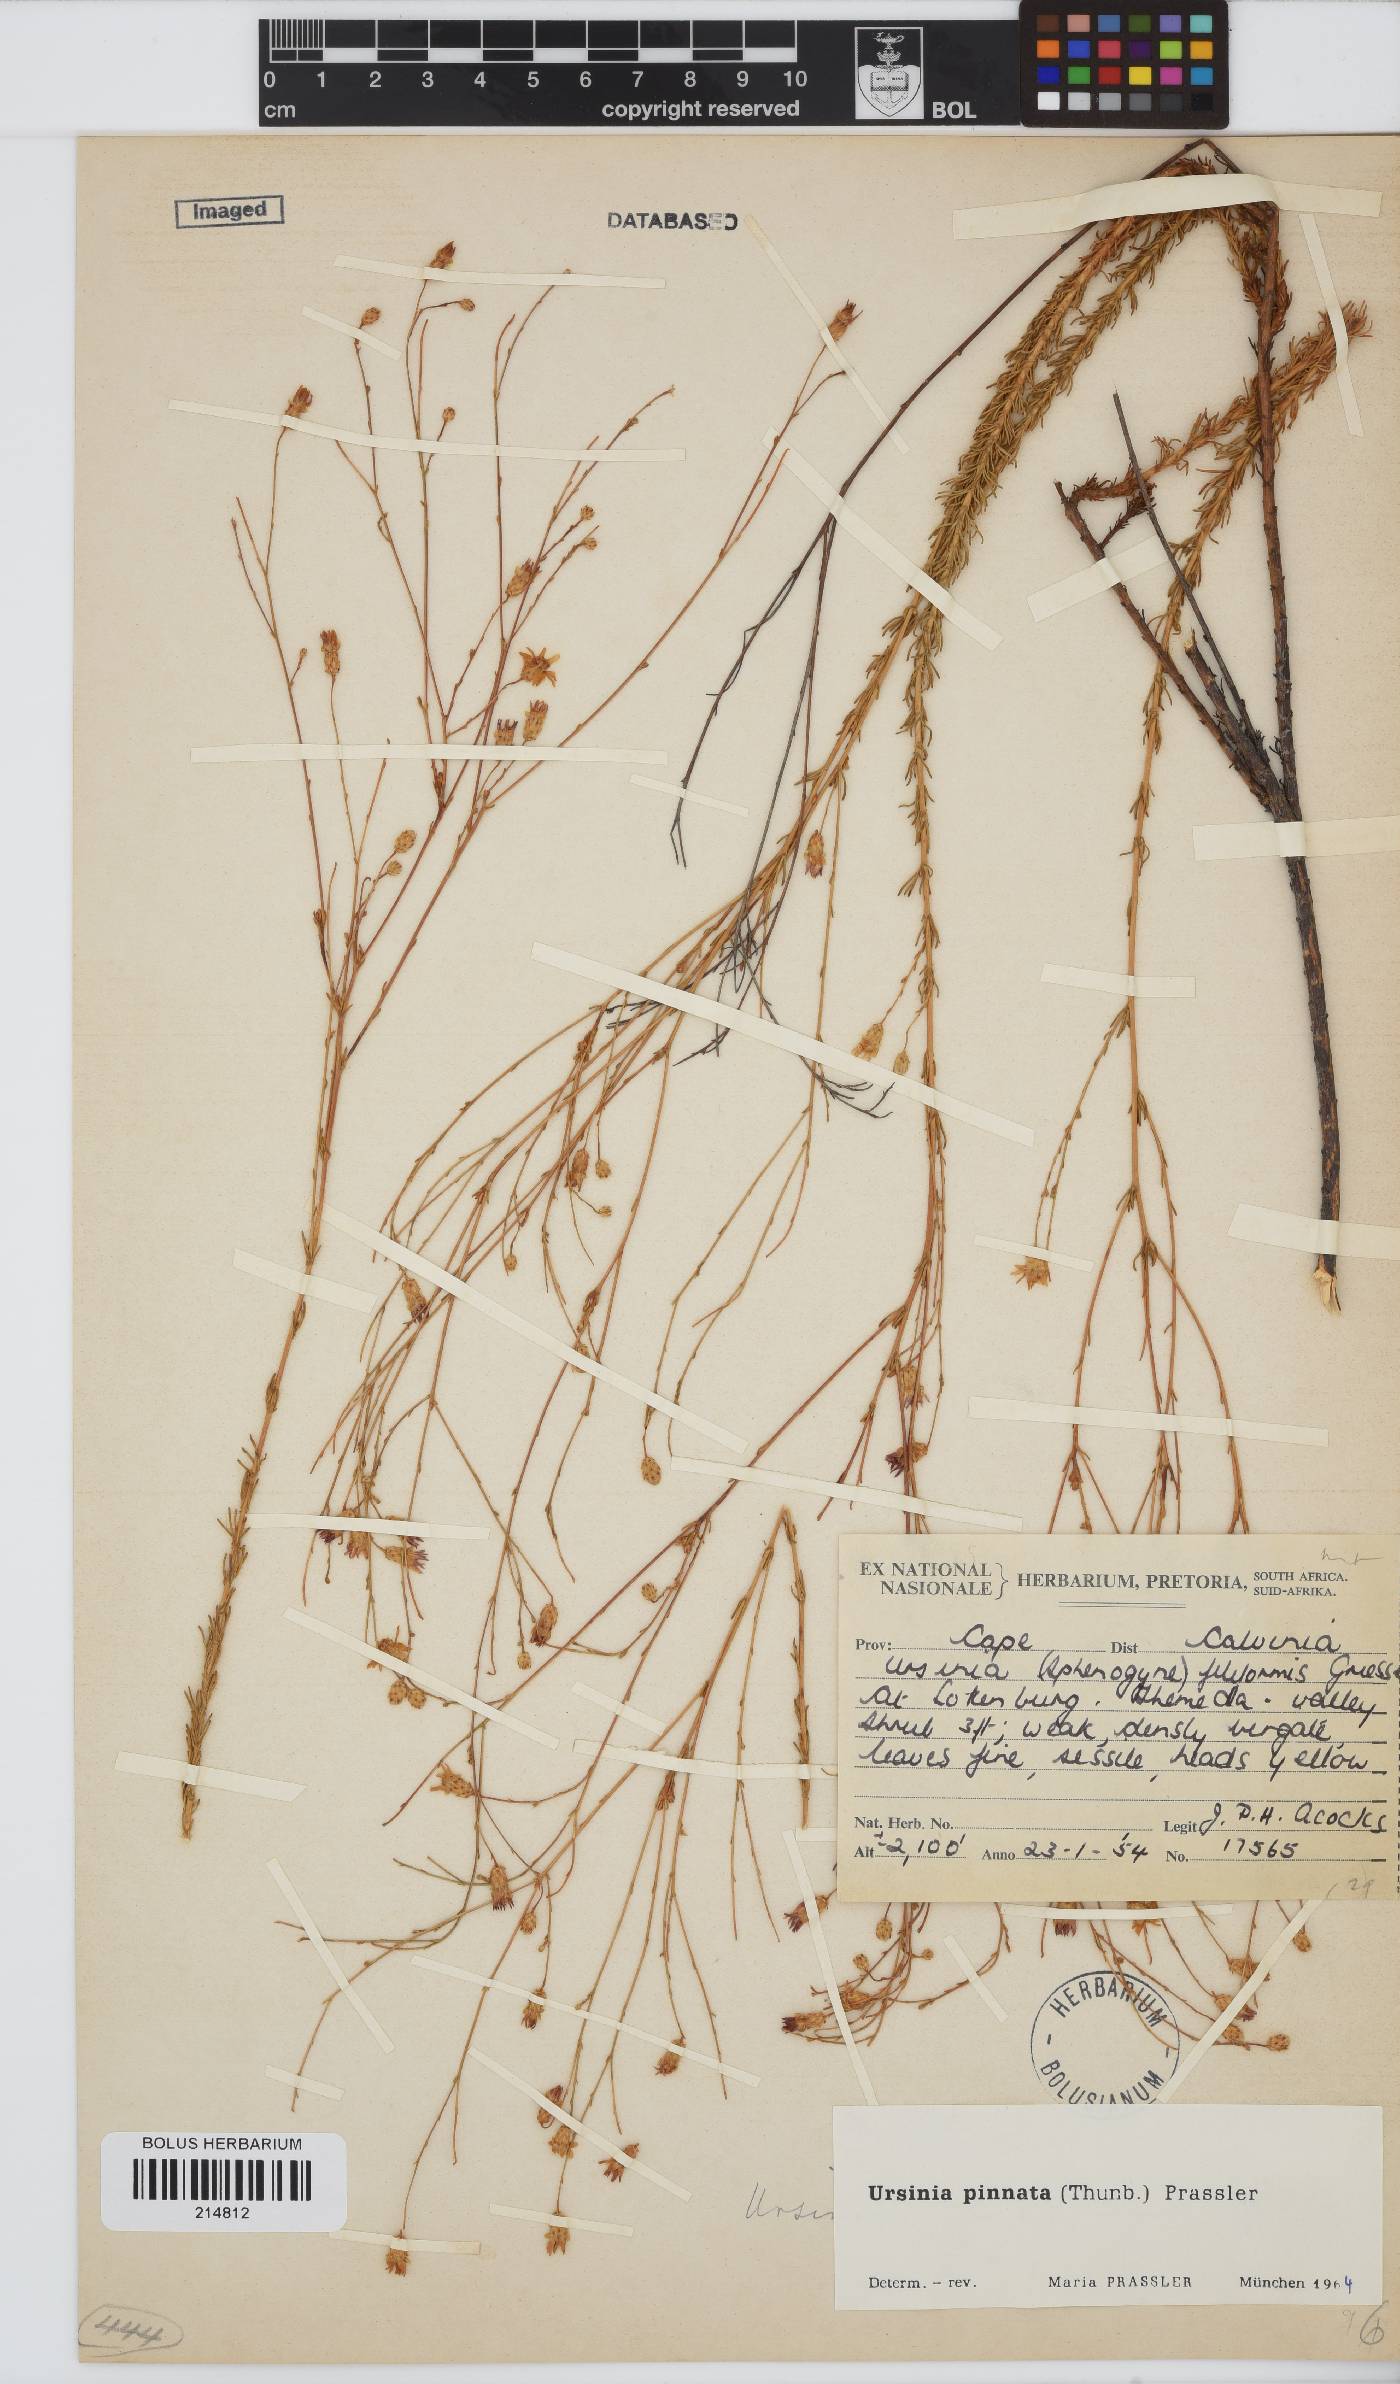 0 1 2 3 4 5 6 7 8 9 10
cm
copyright reserved
BOL
Imaged
DATABASED
EX NATIONAL
NASIONALE
HERBARIUM, PRETORIA,
SOUTH AFRICA.
SUID-AFRIKA.
Prov: Cape Dist Calvinia
Ursinia (Sphenogyne) filiformis Griess
At Lokenburg. Themeda - valley
Shrub 3ft; weak, densly virgate,
leaves fine, sessile, heads yellow
Nat. Herb. No. Legit J. P. H. Acocks
Alt ±2,100' Anno 23-1-'54 No. 17565
HERBARIUM
BOLUSIANUM
BOLUS HERBARIUM
214812
Ursi
Ursinia pinnata (Thunb.) Prassler
Determ. - rev. Maria PRASSLER München 1964
444